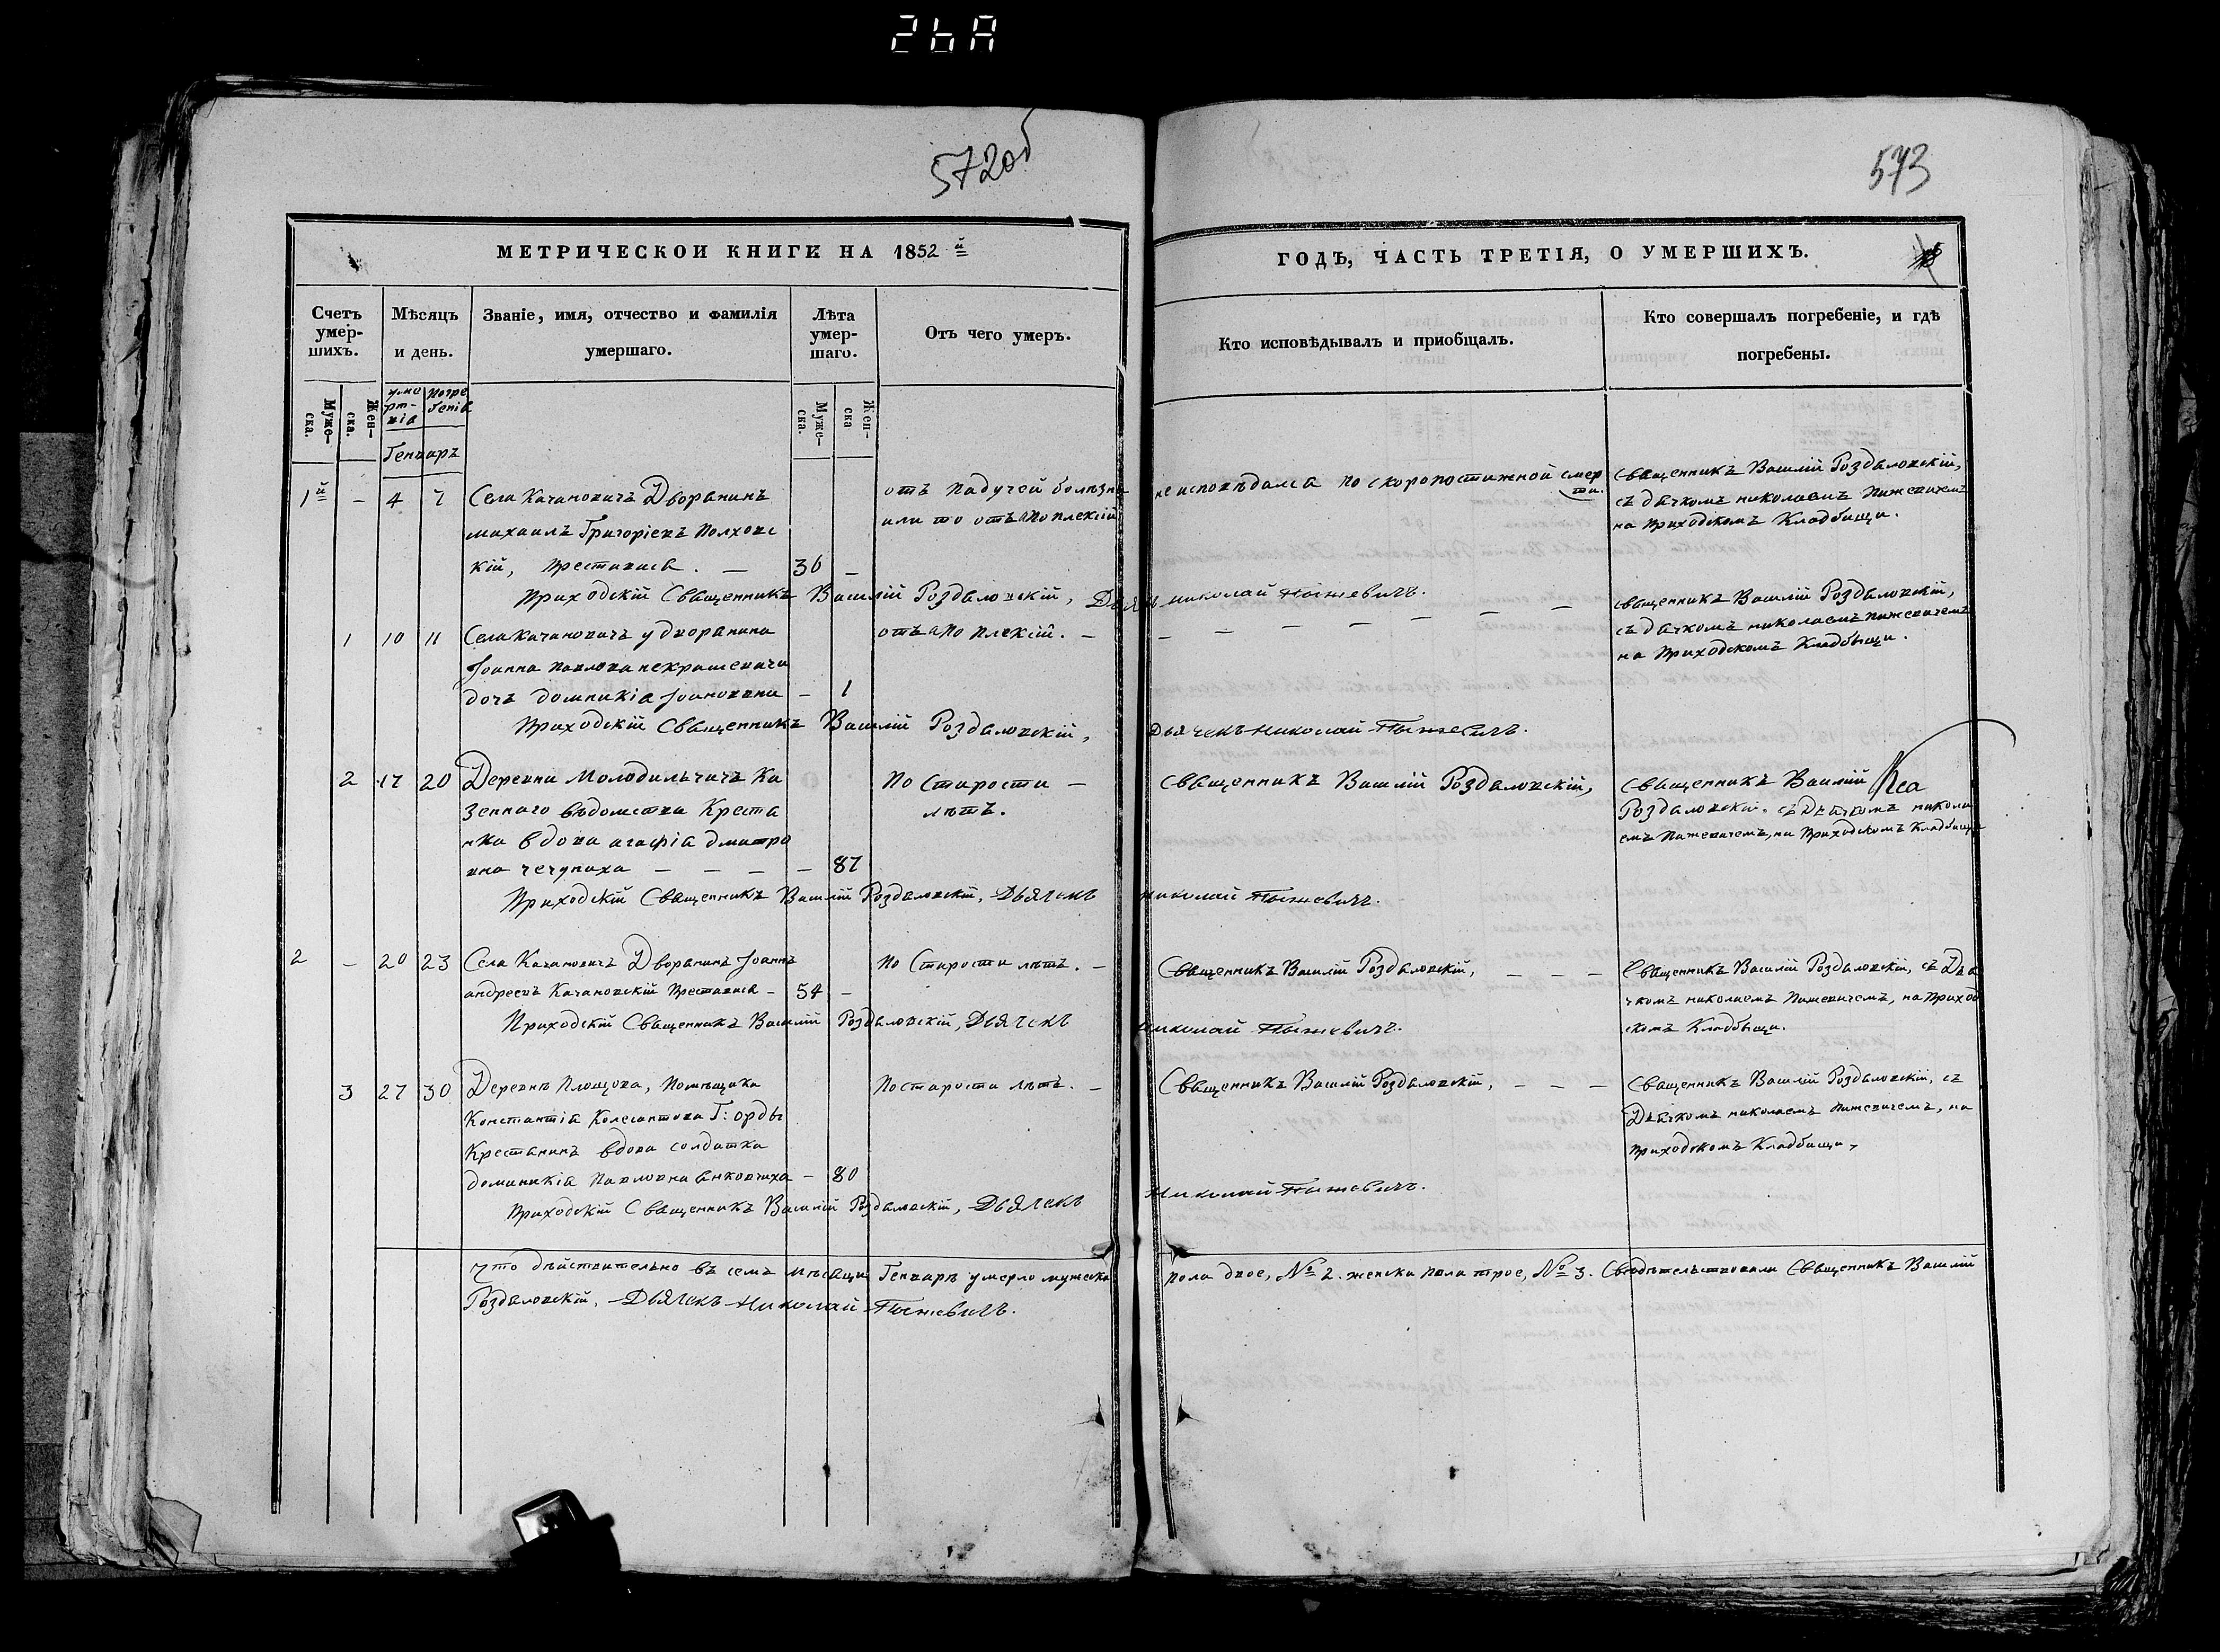 26A
572об
573
МЕТРИЧЕСКОЙ КНИГИ НА 1852й
ГОДЪ, ЧАСТЬ ТРЕТІЯ, О УМЕРШИХЪ.
Счетъ умер-шихъ.
Муже-ска.
Жен-ска.
Мѣсяцъ и день.
умерт-вія
погребенія
Генваръ
Званіе, имя, отчество и фамилія
умершаго.
Лѣта умер-шаго.
Муже-ска.
Жен-ска
Отъ чего умеръ.
Кто исповѣдывалъ и приобщалъ.
Кто совершалъ погребеніе, и гдѣ
погребены.
1й – 4 7 Села Качановичъ Дворянинъ
михаилъ Григоріевъ Полховс
кій, преставися. – 36 –
отъ падучей болезни
или то отъ апоплексіи
не исповѣдался по скоропостижной смер
ти.
священникъ Василій Роздяловскій,
съ дячкомъ николаемъ Пыжевичемъ
на приходскомъ Кладбищи.
Приходскій Священникъ Василій Роздяловскій, Дьячекъ николай Пыжевичъ.
1 10 11 Села Качановичъ у дворянина
Іоанна павлова некрашевича
дочъ домникія Іоановна – 1
отъ апоплексіи. –
– – – – – – –
священникъ Василій Роздяловскій,
съ дячкомъ николаемъ пыжевичемъ
на приходскомъ Кладбыщи.
Приходскій Священникъ Василій Роздяловскій, Дьячекъ Николай Пыжевичъ.
2 17 20 Деревни Молодильчичъ Ка
зеннаго вѣдомства Крестя
нка вдова агафія дмитро
вна чечупиха – – – – – 87
По Старости –
лѣтъ.
Священникъ Василій Роздяловскій,
Священникъ Василій
Роздяловскій. съ Дьячкомъ никола
емъ Пыжевичемъ, на приходскомъ Кладбищи
Приходскій Священникъ Василій Роздяловскій, Дьячекъ николай Пыжевичъ.
2 – 20 23 Села Качановичъ Дворянинъ Іоаннъ
андреевъ Качановскій преставися – 54 –
по Старости лѣтъ. –
Священникъ Василій Роздяловскій, – – –
Священникъ Василій Роздяловскій, съ Дья
чкомъ николаемъ Пыжевичемъ, на приход
скомъ Кладбыщи.
Приходскій Священникъ Василій Роздяловскій, Дьячекъ николай Пыжевичъ.
3 27 30 Деревнѣ Площова, помѣщика
Константія Г: орды
Крестянинъ вдова солдатка
доминикія Павловна – 80
По старости лѣтъ. –
Священникъ Василій Роздяловскій, – – –
Священникъ Василій Роздяловскій, съ
Дьячкомъ николаемъ Пыжевичемъ, на
приходскомъ Кладбищи,
Приходскій Священникъ Василій Роздяловскій, Дьячекъ Николай Пыжевичъ.
Что дѣйствительно въ семъ мѣсяцы Генварѣ умерло мужеска пола двое, № 2. женска пола трое, № 3. Свидѣтельствовали Священникъ Василій
Роздяловскій, Дьячекъ Николай Пыжевичъ.